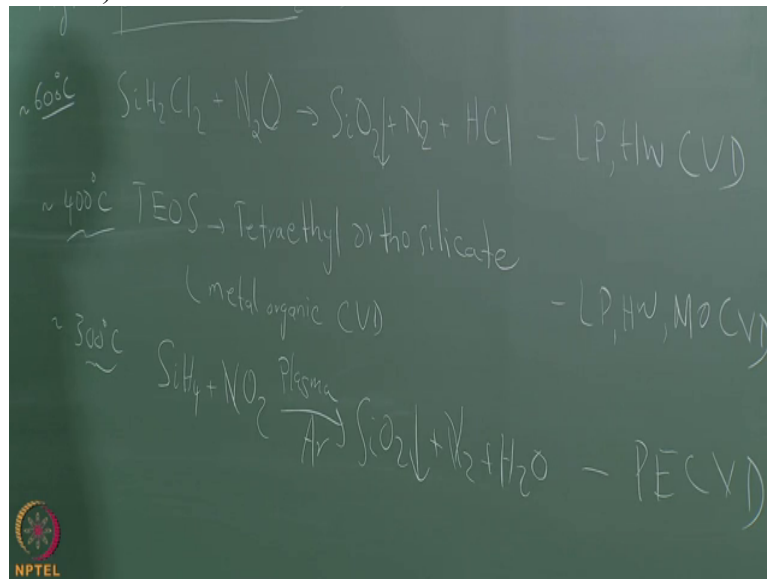 ~600°C SiH₂Cl₂ + N₂O → SiO₂↓ + N₂ + HCl - LP, HW CVD
~400°C TEOS → Tetraethyl orthosilicate
(metal organic CVD - LP, HW, MOCVD
~300°C SiH₄ + NO₂ Plasma Ar → SiO₂↓ + N₂ + H₂O - PECVD
NPTEL